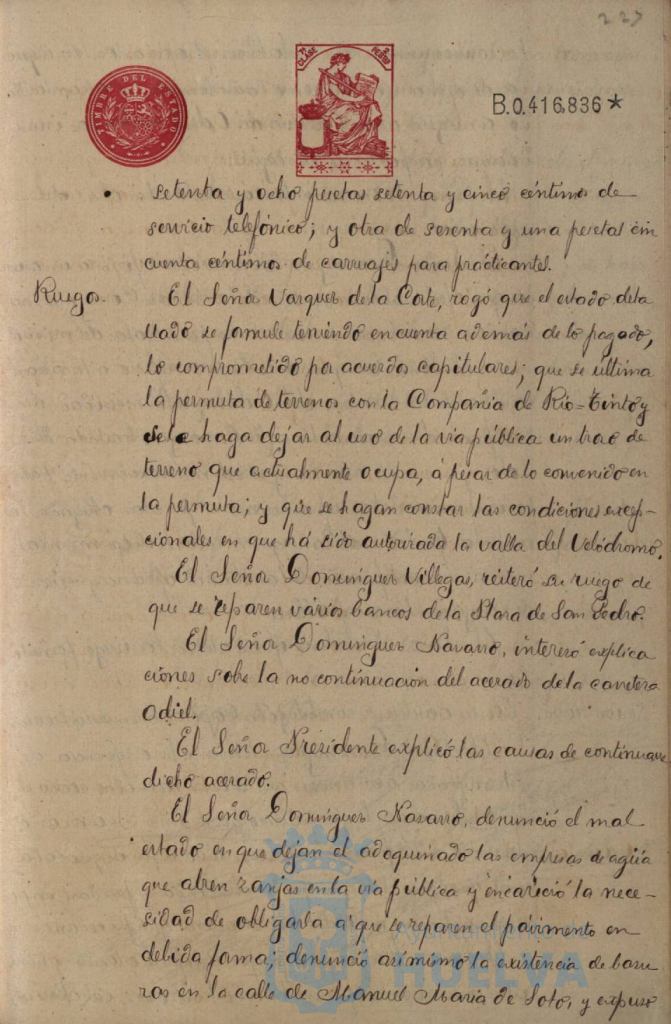 227
TIMBRE DEL ESTADO
11ª CLASE
B.0.416,836*
setenta y ocho pesetas setenta y cinco céntimos de
servicio telefónico; y otra de sesenta y una pesetas cin
cuenta céntimos de carruajes para practicantes.
Ruegos.
El Señor Vazquez de la Corte, rogó que el estado deta
llado se formule teniendo en cuenta además de lo pagado,
lo comprometido por acuerdos capitulares; que se última
la permuta de terrenos con la Compañia de Rio-Tinto y
se le haga dejar al uso de la via pública un trozo de
terreno que actualmente ocupa, á pesar de lo convenido en
la permuta; y que se hagan constar las condiciones excep-
cionales en que há sido autorizada la valla del Velódromo.
El Señor Dominguez Villegas, reiteró su ruego de
que se reparen vários bancos de la Plaza de San Pedro.
El Señor Dominguez Navarro, interesó explica
ciones sobre la no continuación del acerado de la carretera
Odiel.
El Señor Presidente explicó las causas de
dicho acerado.
El Señor Dominguez Navarro, denunció el mal
estado en que dejan el adoquinado las empresas de agüa
que abren zanjas en la via pública y encareció la nece-
sidad de obligarla á que se reparen el pavimento en
debida forma; denunció asimismo la existencia de basu
ras en la calle de Manuel Maria de Soto, y expuso
HUELVA